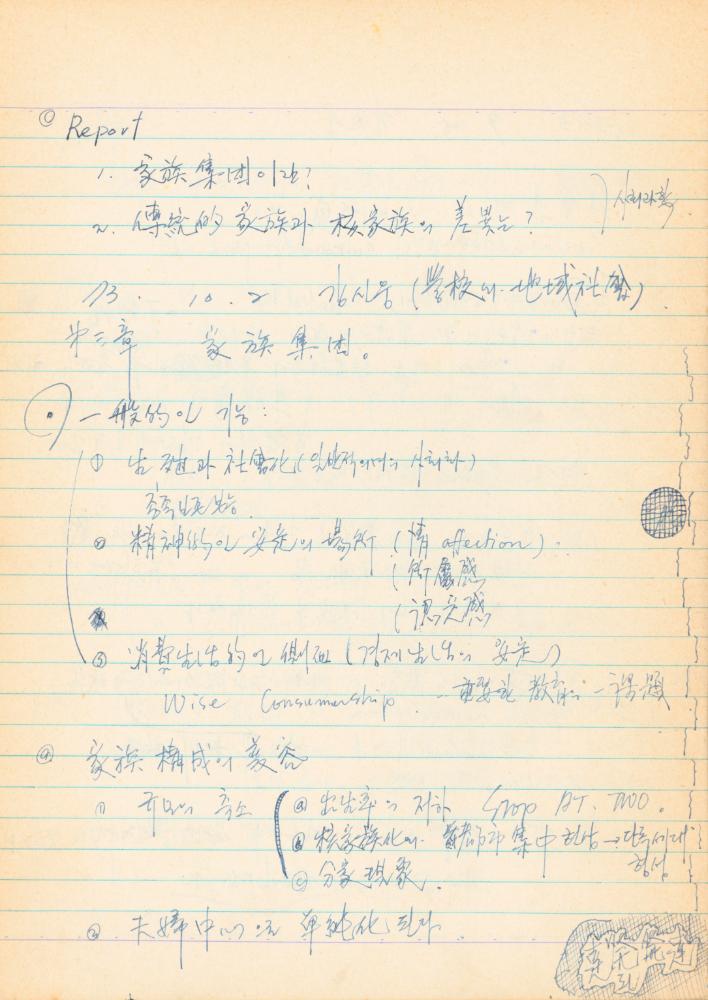 ◎ Report
1. 家族集団이란?
2. 傳統的 家族과 核家族의 差異는?
사회과학
73. 10. 2 김시웅 (學校와 地域社會)
第三章 家族集団。
一般的인 기능:
① 生殖과 社會化(일반적의미의 사회화)
종족보존
② 精神的인 安定의 場所 (情 affection)
(所屬感
(認定感
③ 消費生活的인 側面 (경제생활의 安定)
Wise Consumership 重要한 教育의 一課題
④ 家族構成의 変容
① 규모의 축소
ⓐ 出生率의 저하 Stop AT. TWO.
ⓑ 核家族化와 都市集中 현상 → 단독세대 형성
ⓒ 分家現象.
② 夫婦中心으로 單純化 된다.